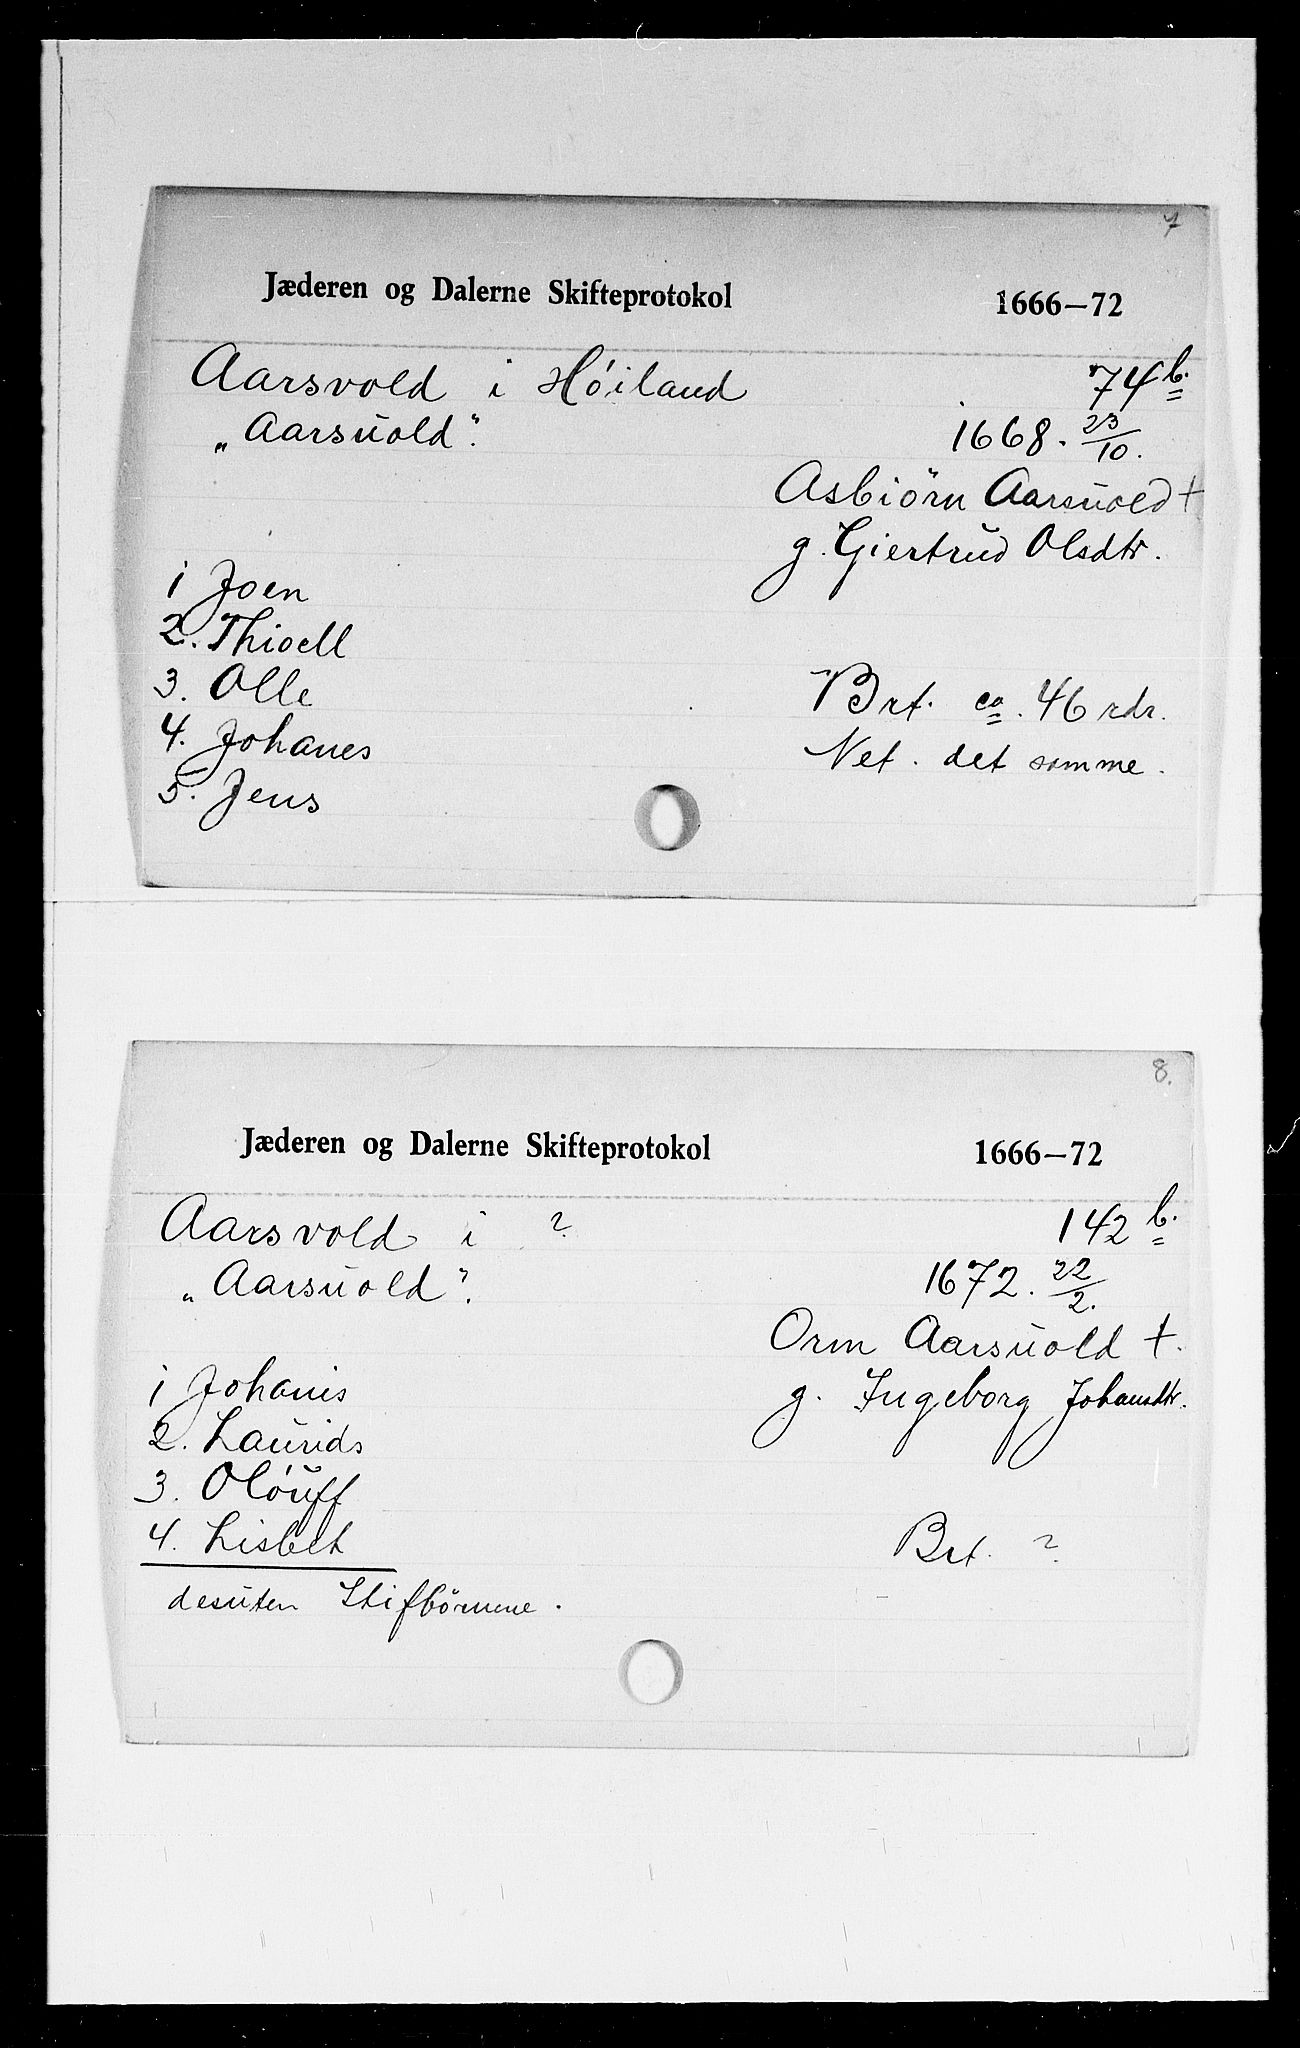 7
Jæderen og Dalerne Skifteprotokol 1666—72
Aarsvold i Høiland 74 b.
"Aarsŭold". 1668. 23/10.
Asbiörn Aarsŭold †
g. Giertrud Olsdtr.
1 Joen
2. Thioell
3. Olle
Brt. ca. 46 rdr.
4. Johanes
Net. det samme.
5. Jens
8.
Jæderen og Dalerne Skifteprotokol 1666—72
Aarsvold i ? 142 b.
"Aarsŭold". 1672. 22/2.
Orm Aarsŭold †.
1 Johanis
g. Ingeborg Johansdtr.
2. Laŭrids
3. Oløŭff
4. Lisbet
Brt. ?
desŭten Stifbörnene.